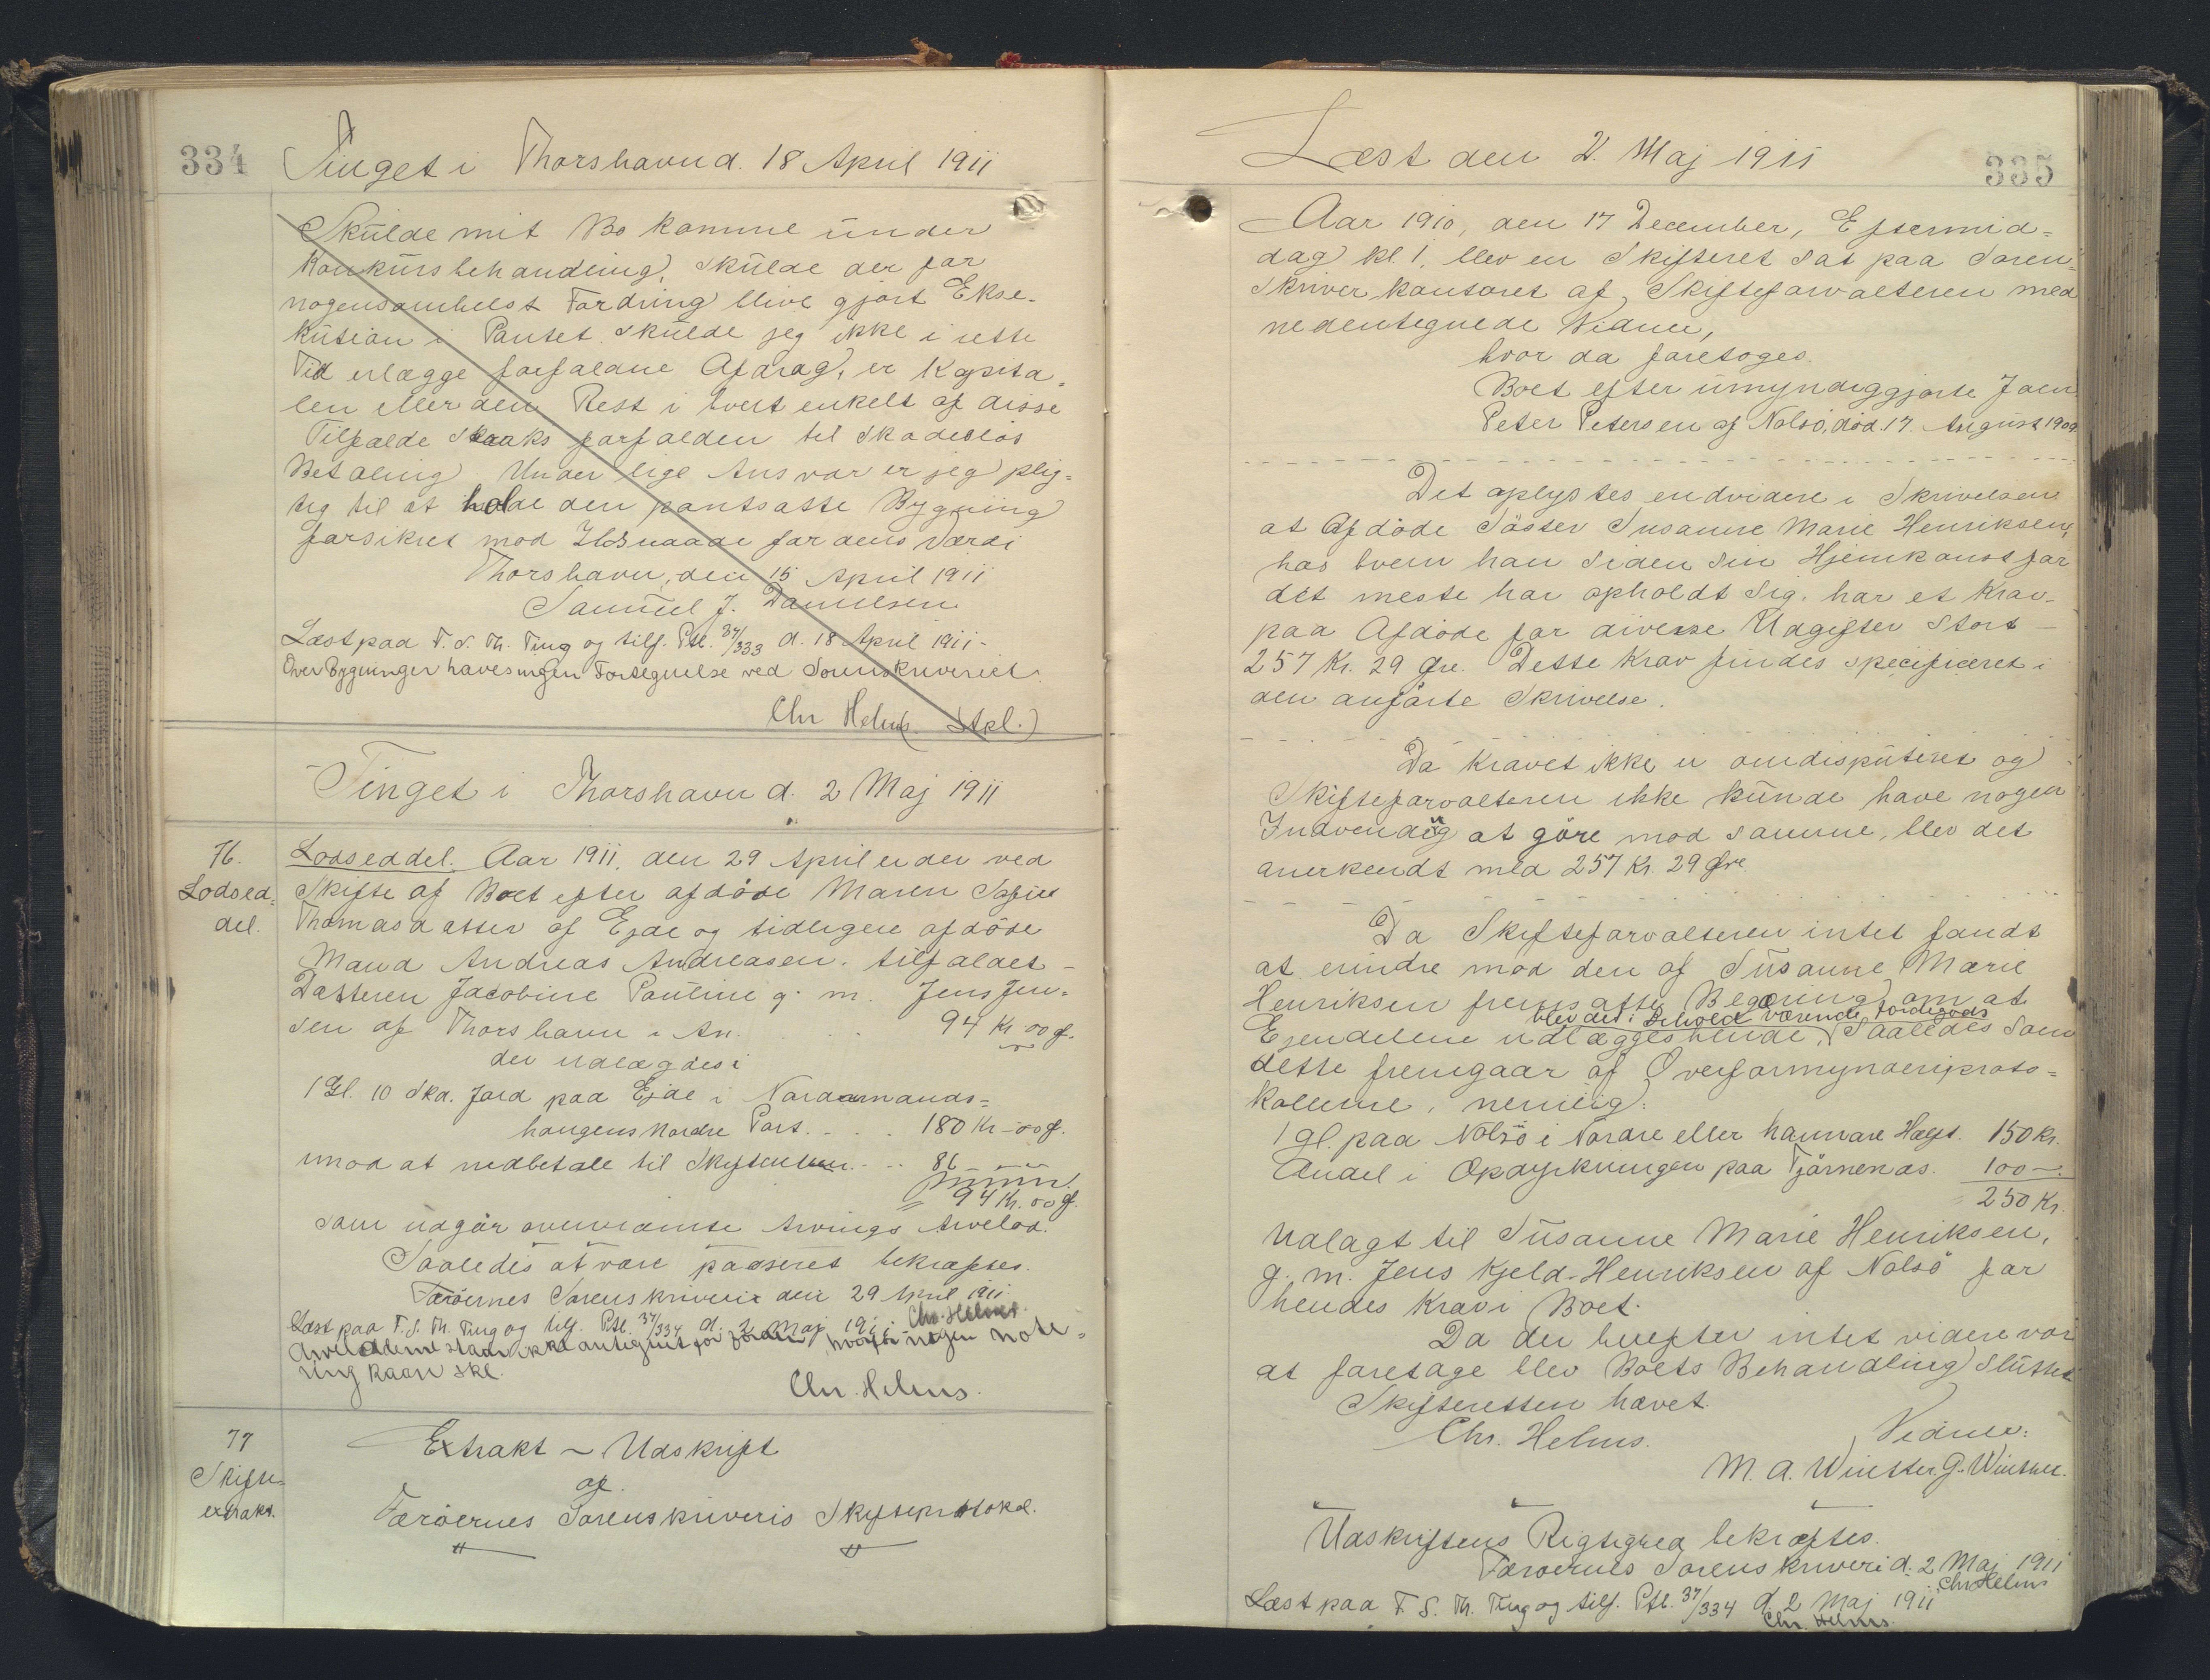 334
Tinget i Thorshavn d. 18 April 1911
Skulde mit Bo komme under
Konkursbehandling, skulde der for
nogensomhelst Fordring blive gjort Ekse-
kution i Pantet, skulde jeg ikke i rette
Tid erlægge forfaldne Afdrag, er Kapita-
len eller den Rest i hvert enkelt af disse
Tilfælde straks forfalden til skadeslös
Betaling. Under lige Ansvar er jeg plig=
tig til at holde den pantsatte Bygning
forsikret mod Ildsvaade for dens Værdi
Thorshavn, den 15 April 1911
Samuel J. Danielsen
Læst paa F. S. Th. Ting og tilf. Ptl. 37/333 d. 18 April 1911 -
Over Bygninger haves ingen Fortegnelse ved Sorenskriveriet.
Chr Helms (tkl.)
Tinget i Thorshavn d. 2 Maj 1911
76.
Lodsed=
del.
Lodseddel. Aar 1911, den 29 April er der ved
Skifte af Boet efter afdöde Maren Sofie
Thomasdatter af Ejde og tidligere afdöde
Mand Andreas Andreasen. tilfaldet -
Datteren Jacobine Pauline g. m. Jens Jen=
sen af Thorshavn i Arv. . . . 94 Kr 00 Ø.
der udlægdes i
1 Gl. 10 Skd. Jord paa Ejde i Nordamands=
hougens Nordre Part. . . . 180 Kr - 00 Ø.
imod at nedbetale til Skifteretten . . . 86
94 Kr. 00 Ø.
som udgör ovennævnte Arvings Arvelod.
Saaledes at være passeret bekræftes.
Færöernes Sorenskriveri den 29 April 1911
Chr. Helms.
Læst paa F. S. Th. Ting og tilf. Ptl. 37/334 d. 2 Maj 1911
Arveladerne staar ikke antegnet for Jorden, hvorfor nogen Note=
ring kaan ske.
Chr. Helms.
77
Skifte-
extrakt.
Extrakt - Udskrift
af
Færöernes Sorenskriveris Skifteprotokol.
Læst den 2. Maj 1911
335
Aar 1910, den 17 December, Eftermid=
dag kl. 1, blev en Skifteret sat paa Soren=
skriverkontoret af Skifteforvalteren med
nedentegnede Vidner,
hvor da foretoges.
Boet efter umyndiggjorte Joen
Peter Petersen af Nolsö, död 17. August 1909
Det oplystes endvidere i Skrivelsen
at Afdöde Söster Susanne Marie Henriksen,
hos hvem han siden sin Hjemkomst for
det meste har opholdt sig, har et Krav
paa Afdöde for diverse Udgifter stort -
257 Kr. 29 Øre. Dette Krav findes specificeret i
den anförte Skrivelse.
Da Kravet ikke er omdisputeret og
Skifteforvalteren ikke kunde have nogen
Indvending at göre mod samme, blev det
anerkendt med 257 Kr. 29 Øre
Da Skifteforvalteren intet fandt
at erindre mod den af Susanne Marie
Henriksen fremsatte Begæring om at
blev det i Behold værende Jordegods
Ejendelene udlægges hende, saaledes som
dette fremgaar af Overformynderiproto=
kollerne, nemlig:
1 gl. paa Nolsö i Nordre eller hannare Hælvt. 150 Kr.
Andel i Opdyrkningen paa Tjörnenæs. 100 -
250 Kr.
udlagt til Susanne Marie Henriksen,
g. m. Jens Kjeld-Henriksen af Nolsö for
hendes Krav i Boet.
Da der herefter intet videre var
at foretage blev Boets Behandling sluttet
Skifteretten hævet.
Chr. Helms.
Vidner:
M. A. Winther. G. Winther.
Udskriftens Rigtighed bekræftes.
Færöernes Sorenskriveri d. 2 Maj 1911
Chr Helms
Læst paa F. S. Th. Ting og tilf. Ptl. 37/334 d. 2 Maj 1911
Chr. Helms.